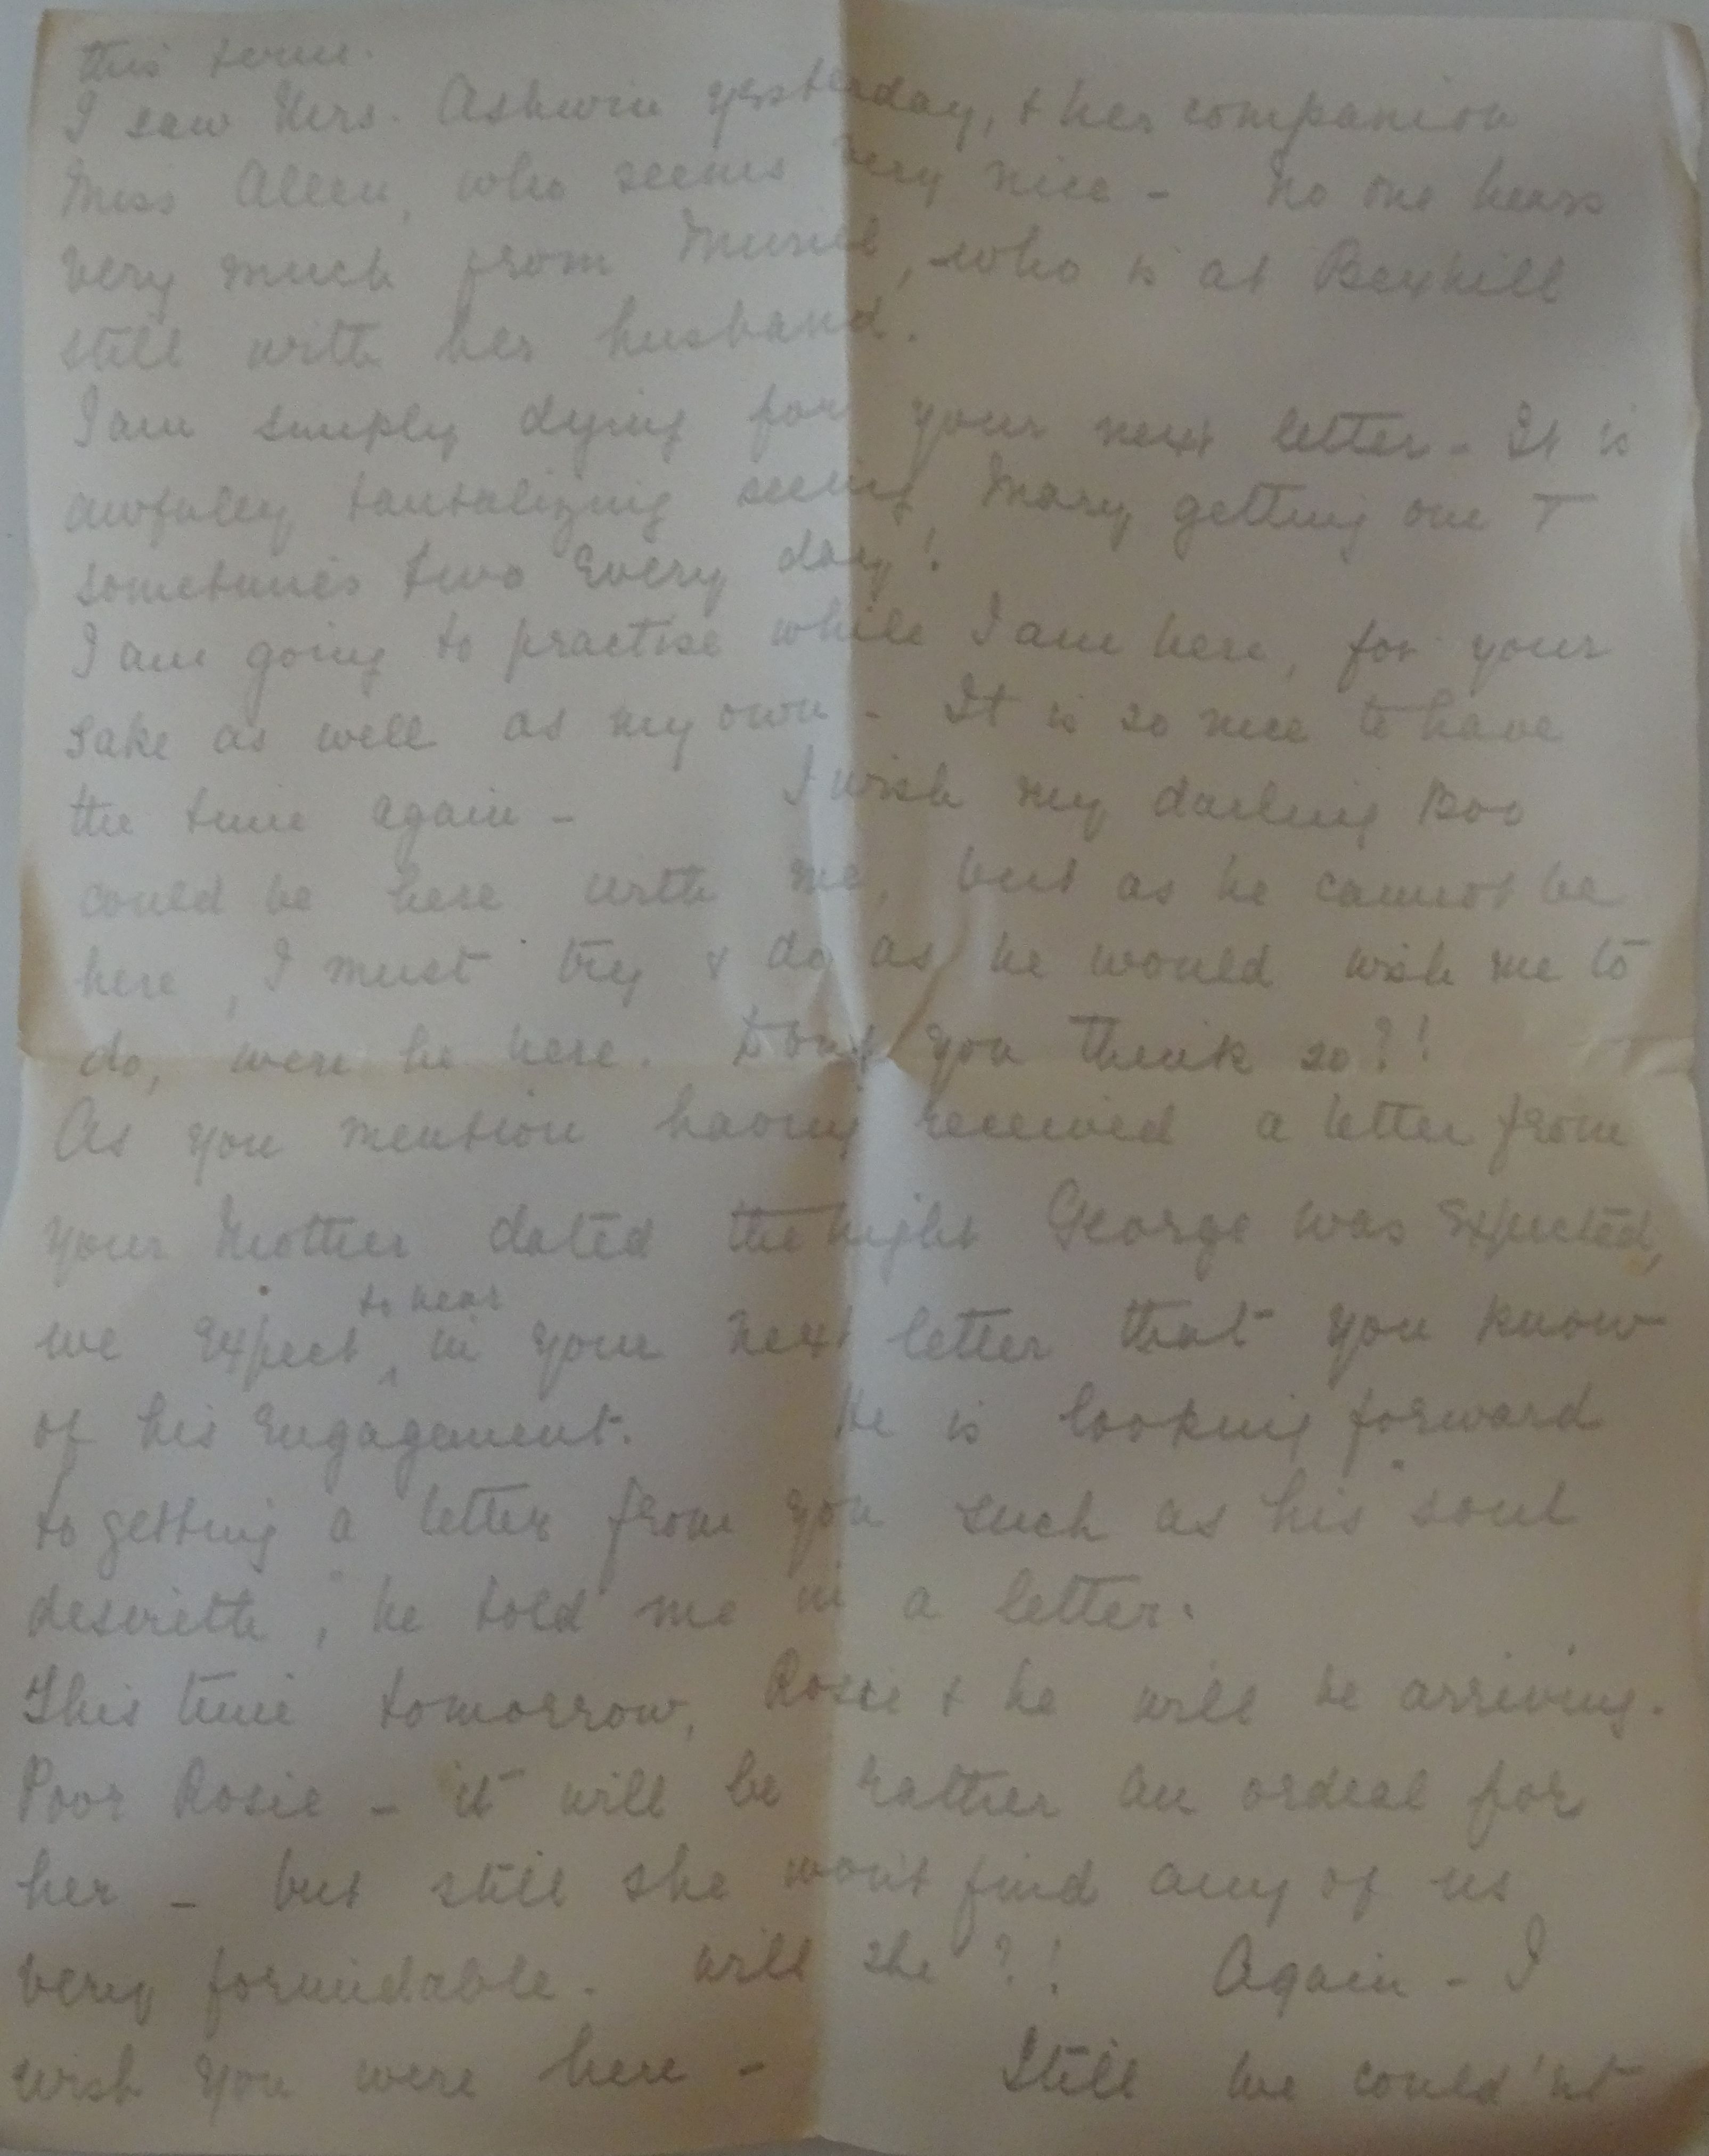 this term.
I saw Mrs. Ashwin yesterday, & her companion
Miss Allen, who seems very nice - No one hears
very much from Muriel, who is at Bexhill
still with her husband.
I am simply dying for your next letter - It is
awfully tantalizing seeing Mary getting one &
sometimes two every day!
I am going to practise while I am here, for your
sake as well as my own - It is so nice to have
the time again - I wish my darling Boo
could be here with me, but as he cannot be
here, I must try & do as he would wish me to
do, were he here. Don't you think so?!
As you mention having received a letter from
your Mother dated the night George was expected,
we expect ^to hear in your next letter that you know
of his engagement. He is looking forward
to getting a letter from you such as his "soul
desireth", he told me in a letter.
This time tomorrow, Rosie & he will be arriving.
Poor Rosie - it will be rather an ordeal for
her - but still she won't find any of us
very formidable - will she?! Again - I
wish you were here - Still we could'nt